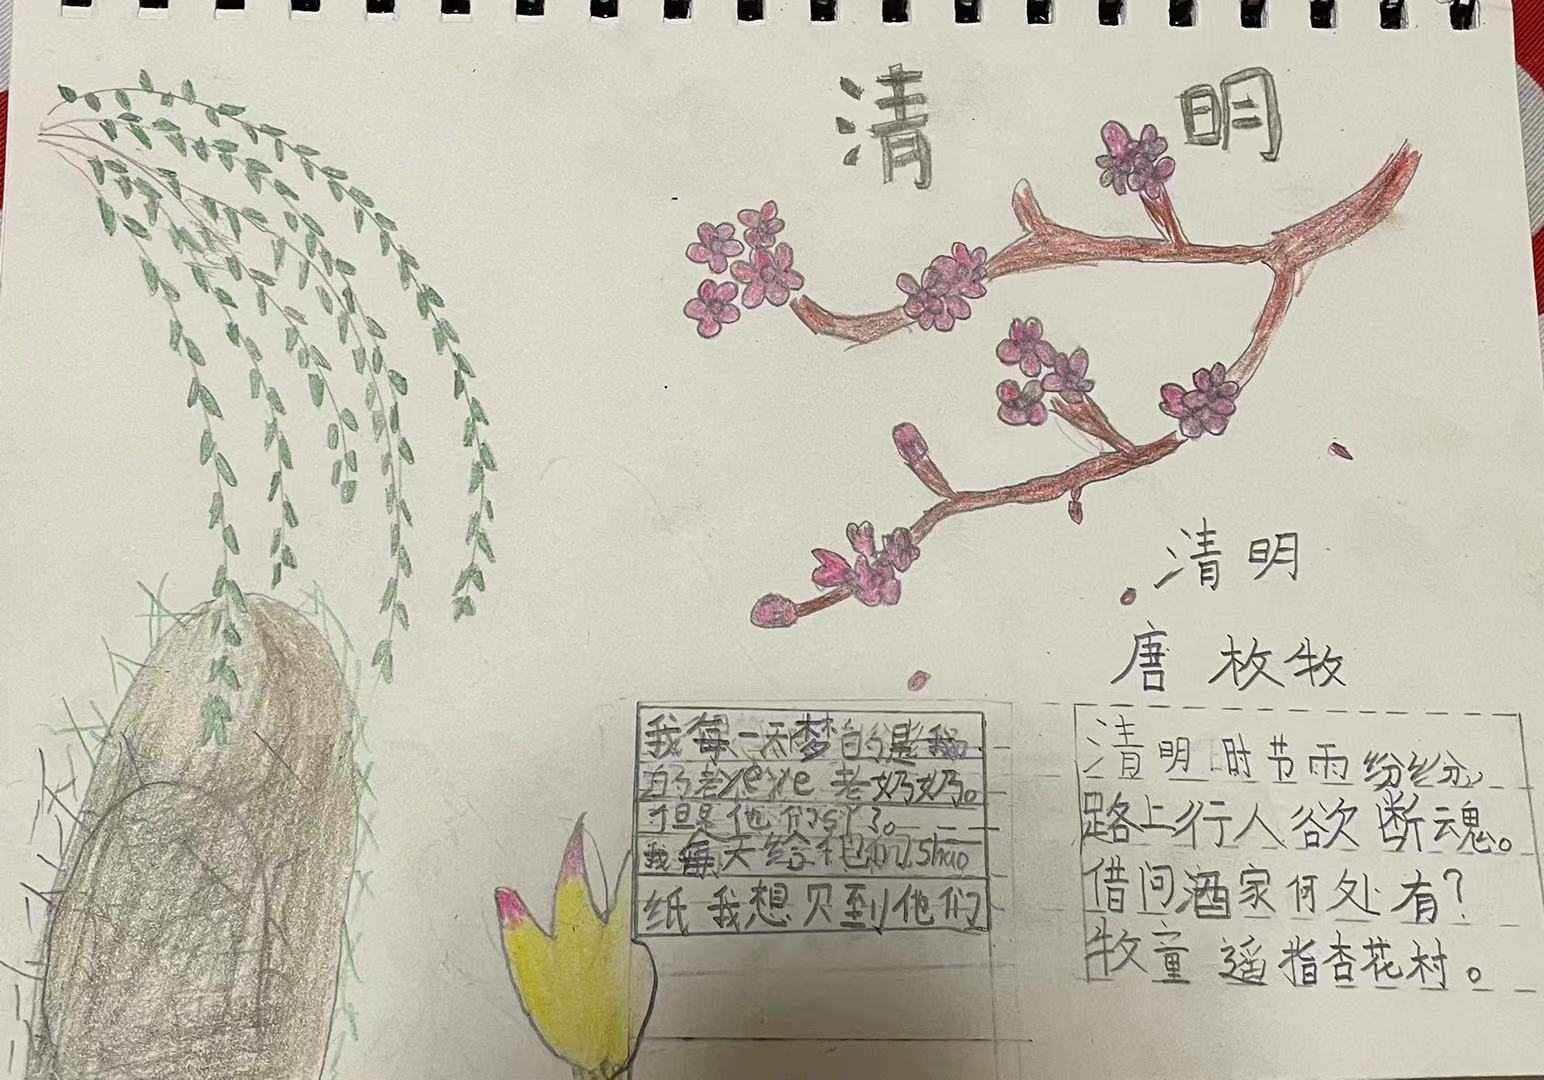 清 明
清明
唐 枚牧
我每一天梦的是我
的老yeye 老奶奶。
但是他们si了。
我每天给他们shao
纸 我想贝到他们
清明时节雨纷纷,
路上行人欲断魂。
借问酒家何处有？
牧童遥指杏花村。